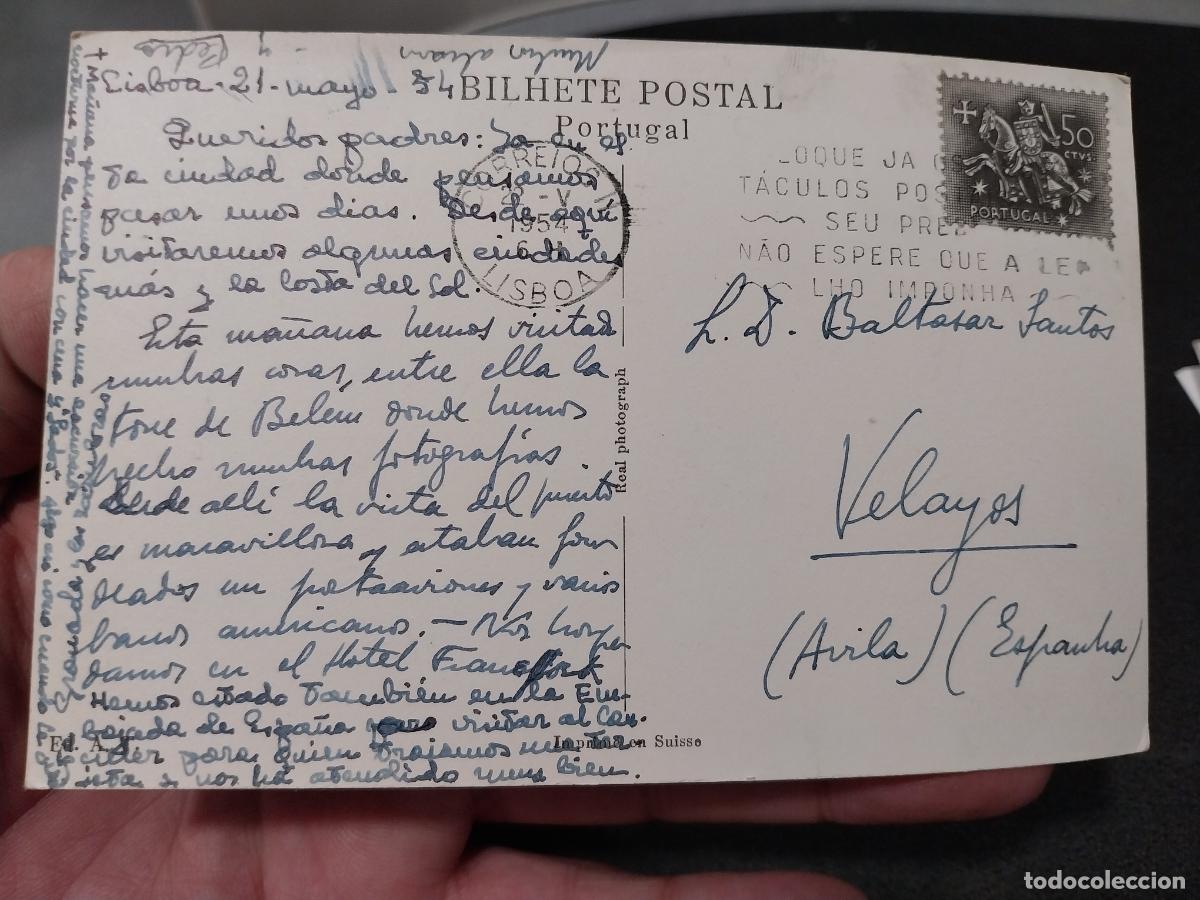 Muchos abrazos
y
Pedro
Lisboa-21-mayo 54
BILHETE POSTAL
Portugal
Queridos padres: Ya en es
ta ciudad donde pensamos
pasar unos dias. Desde aquí
visitaremos algunas ciudades
más y la Costa del Sol.
Esta mañana hemos visitado
muchas cosas, entre ella la
torre de Belém donde hemos
hecho muchas fotografías.
Desde allí la vista del puerto
es maravillosa y estaban fon
deados un portaaviones y varios
barcos americanos. — Nos hospe
damos en el Hotel Francfort
Hemos estado también en la Em-
bajada de España para visitar al Can-
ciller para quien traíamos una tar-
jeta y nos ha atendido muy bien.
+ Mañana pensamos hacer una excursión
nocturna por la ciudad con cena y fados.
CORREIOS
21-V
1954
LISBOA
COLOQUE JA
TÁCULOS POS
SEU PRED
NÃO ESPERE QUE A LEI
LHO IMPONHA
50
CTVS.
PORTUGAL
S. D. Baltasar Santos
Velayos
(Avila) (Espanha)
Real photograph
Ed. A.
Imprimé en Suisse
todocoleccion